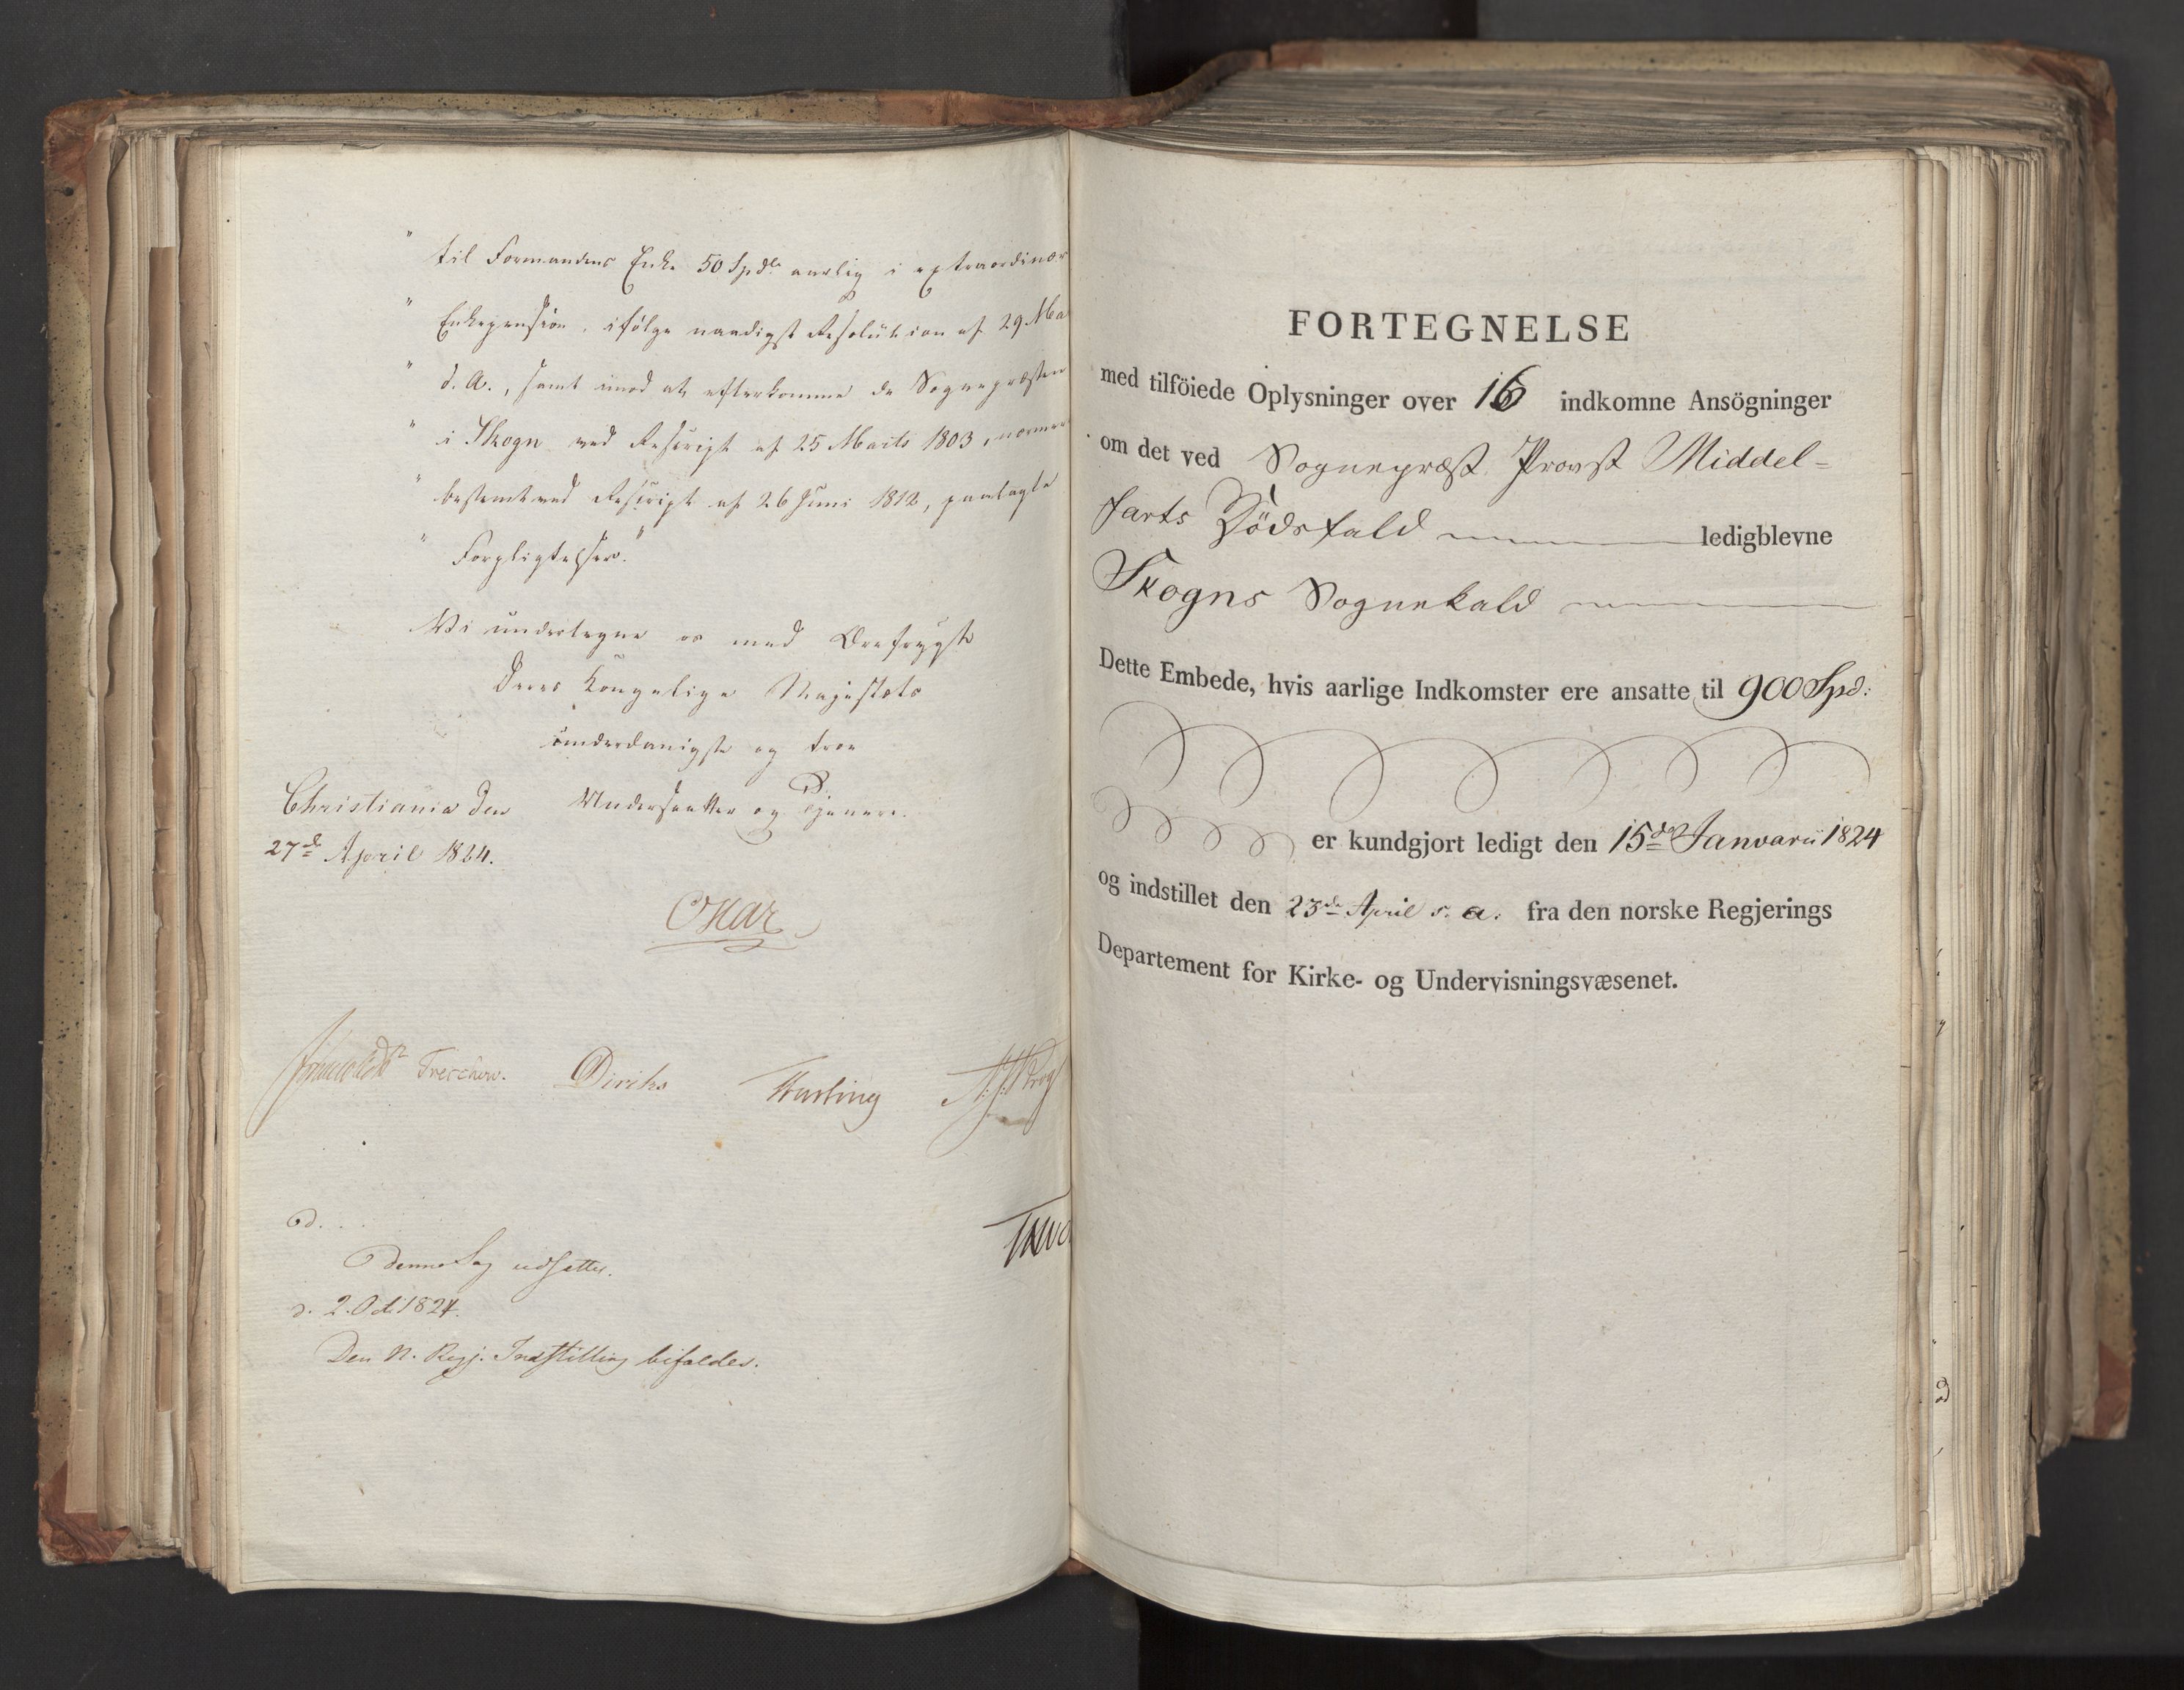 " til Formandens Enke 50 Spdlr aarlig i extraordinær
" Enkepension, ifølge naadigst Resolution af 29 Ma
" d. A., samt imod at efterkomme de Sognepræsten
" i Skogn ved Rescript af 25 Marts 1803, nærmer
" bestemt ved Rescript af 26 Juni 1812, paalagte
" Forpligtelser."
Vi undertegne os med Ærefrygt
Deres Kongelige Majestæts
underdanigste og troe
Christiania den Undersaatter og Tjenere.
27de April 1824.
Oscar
Treschow. Diriks Fasting
d. . .
Denne Sag udsættes.
d. 2. Oct. 1824.
Den N. Regj. Indstilling bifaldes.
FORTEGNELSE
med tilföiede Oplysninger over 16 indkomne Ansögninger
om det ved Sognepræst Provst Middel=
farts Dödsfald ledigblevne
Skogns Sognekald
Dette Embede, hvis aarlige Indkomster ere ansatte til 900 Spd:
er kundgjort ledigt den 15de Januarii 1824
og indstillet den 23de April s. a. fra den norske Regjerings
Departement for Kirke- og Undervisningsvæsenet.